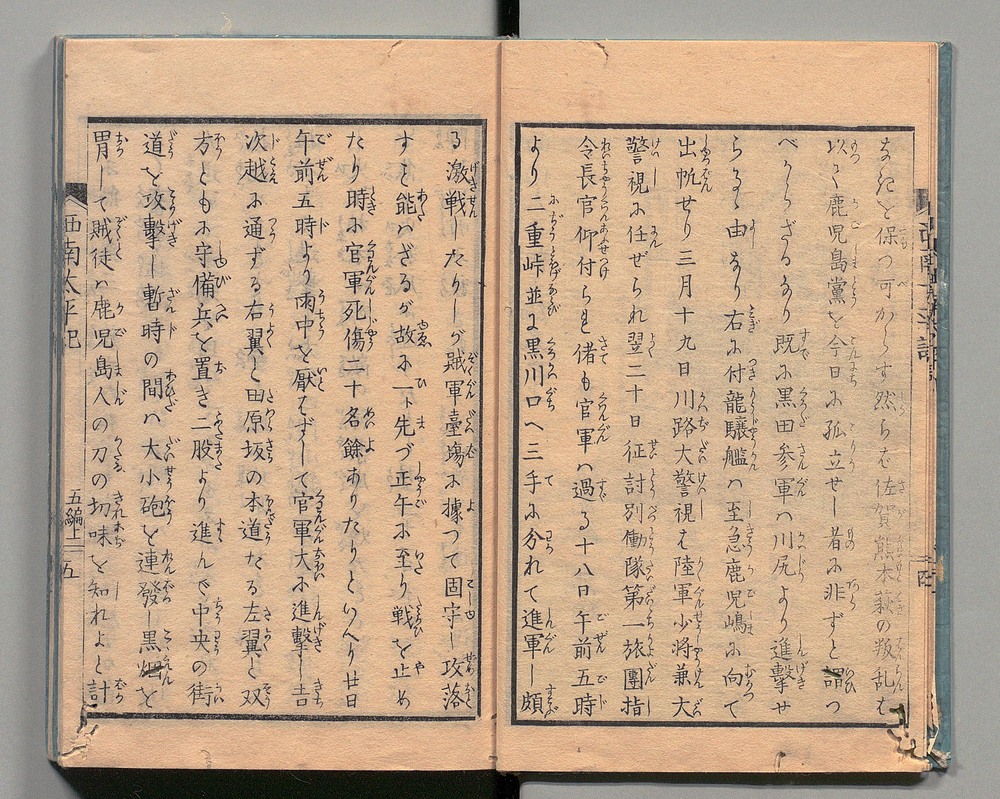 なきを保つ可からず然らば佐賀熊本萩の叛乱も
以て鹿児島黨を今日に孤立せし者に非ずと謂つ
べからざるなり既に黒田参軍ハ川尻より進撃せ
らるゝ由なり右に付龍驤艦ハ至急鹿児嶋に向て
出帆せり三月十九日川路大警視も陸軍少将兼大
警視に任ぜられ翌二十日征討別働隊第一旅團指
令長官仰付られ偖も官軍ハ過る十八日午前五時
より二重峠並に黒川口へ三手に分れて進軍し頗
る激戦したりしが賊軍臺場に據つて固守し攻落
すこと能ハざるが故に一ト先づ正午に至り戦を止め
たり時に官軍死傷二十名餘ありたりといへり廿日
午前五時より雨中を厭はずして官軍大に進撃し吉
次越に通ずる右翼と田原坂の本道たる左翼と双
方とも に守備兵を置き二股より進んで中央の街
道を攻撃し暫時の間ハ大小砲を連發し黒烟を
冒して賊徒ハ鹿児島人の刀の切味を知れよと計
西南太平記
五編上
五